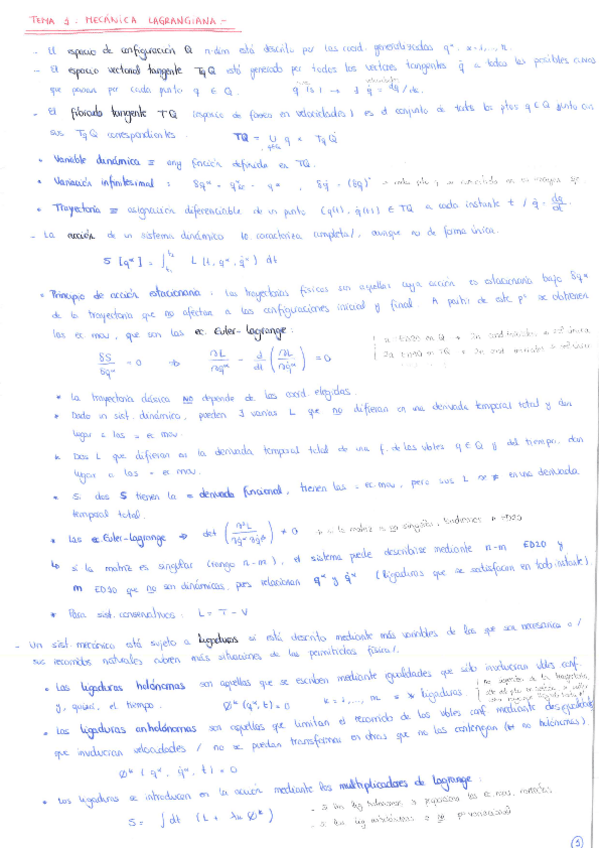 TEMA 1.- MECÁNICA LAGRANGIANA.-
- El espacio de configuración Q n-dim está descrito por las coord. generalizadas qᵅ, α=1,..., n.
- El espacio vectorial tangente TqQ está generado por todos los vectores tangentes q̇ a todas las posibles curvas
que pasan por cada punto q ∈ Q.
- El fibrado tangente TQ (espacio de fases en velocidades) es el conjunto de todos los ptos q ∈ Q junto con
sus TqQ correspondientes. TQ = ∪ q × TqQ
• Variable dinámica ≡ any función definida en TQ.
• Variación infinitesimal :
• Trayectoria ≡ asignación diferenciable de un punto (q(t), q̇(t)) ∈ TQ a cada instante t / q̇ = dq/dt.
- La acción de un sistema dinámico lo caracteriza completa/, aunque no de forma única.
S [qᵅ] = ∫ L (t, qᵅ, q̇ᵅ) dt
• Principio de acción estacionaria : Las trayectorias físicas son aquellas cuya acción es estacionaria bajo δqᵅ
de la trayectoria que no afectan a las configuraciones inicial y final. A partir de este pº se obtienen
las ec mov, que son las ec. Euler-Lagrange :
δS/δqᵅ = 0 ⇒ ∂L/∂qᵅ - d/dt (∂L/∂q̇ᵅ) = 0
• La trayectoria clásica NO depende de las coord. elegidas.
• Dado un sist. dinámico, pueden ∃ varias L que no difieran en una derivada temporal total y dan
lugar a las = ec mov.
• Dos L que difieran en la derivada temporal total de una f. de las vbles q ∈ Q y del tiempo, dan
lugar a las = ec mov.
• Si dos S tienen la = derivada funcional, tienen las = ec. mov, pero sus L en una derivada
temporal total.
• Las ec. Euler-Lagrange ⇒ det (∂²L/∂q̇ᵅ∂q̇ᵝ) ≠ 0
↳ si la matriz es singular (rango n-m), el sistema puede describirse mediante n-m ED2O y
m ED1O que no son dinámicas, pues relacionan qᵅ y q̇ᵅ (ligaduras que se satisfacen en todo instante).
• Para sist. conservativos : L = T - V
- Un sist. mecánico está sujeto a ligaduras si está descrito mediante más variables de las que son necesarias o /
sus recorridos naturales cubren más situaciones de las permitidas física/.
• Las ligaduras holónomas son aquellas que se escriben mediante igualdades que sólo involucran vbles conf.
y, quizá, el tiempo. ∅ᵏ (qᵅ, t) = 0 k = 1,..., m ligaduras.
• Las ligaduras anholónomas son aquellas que limitan el recorrido de las vbles conf. mediante desigualdades
que involucran velocidades / no se puedan transformar en otras que no las contengan (⇔ no holónomas).
∅ᵏ (qᵅ, q̇ᵅ, t) = 0
• Las ligaduras se introducen en la acción mediante los multiplicadores de Lagrange :
S = ∫ dt (L + λₖ ∅ᵏ)
1